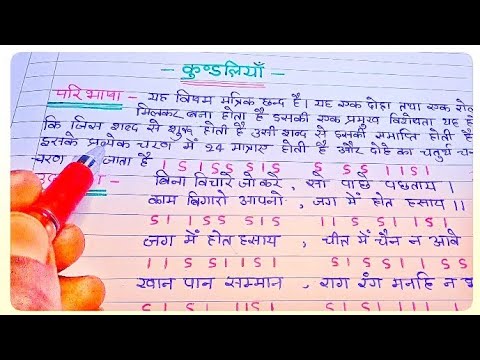 - कुण्डलियाँ -
परिभाषा - यह विषम मत्रिक छन्द है। यह एक दोहा तथा एक
मिलकर बना होता है इसकी एक प्रमुख विशेषता यह
कि जिस शब्द से शुरू होती है उसी शब्द से इसकी समाप्ति होती है
इसके प्रत्येक चरण में 24 मात्राएं होती हैं और दोहे का चतुर्थ
चरण जाता है
। ऽ । ऽ ऽ ऽ । ऽ ऽ ऽ ऽ । । ऽ ।
बिना विचारे जो करे , सो पाछे पछताय ।
काम बिगारो आपनो , जग में होत हसाय ।।
ऽ । । ऽ ऽ ऽ । ऽ । । ऽ ऽ । । ऽ ।
जग में होत हसाय , चीत में चैन न आवे
। । ऽ ऽ । । ऽ । ऽ । ऽ ऽ । । ऽ ऽ
खान पान सम्मान , राग रंग मनहि न
ऽ । ऽ । । । ऽ । ऽ । ऽ ।